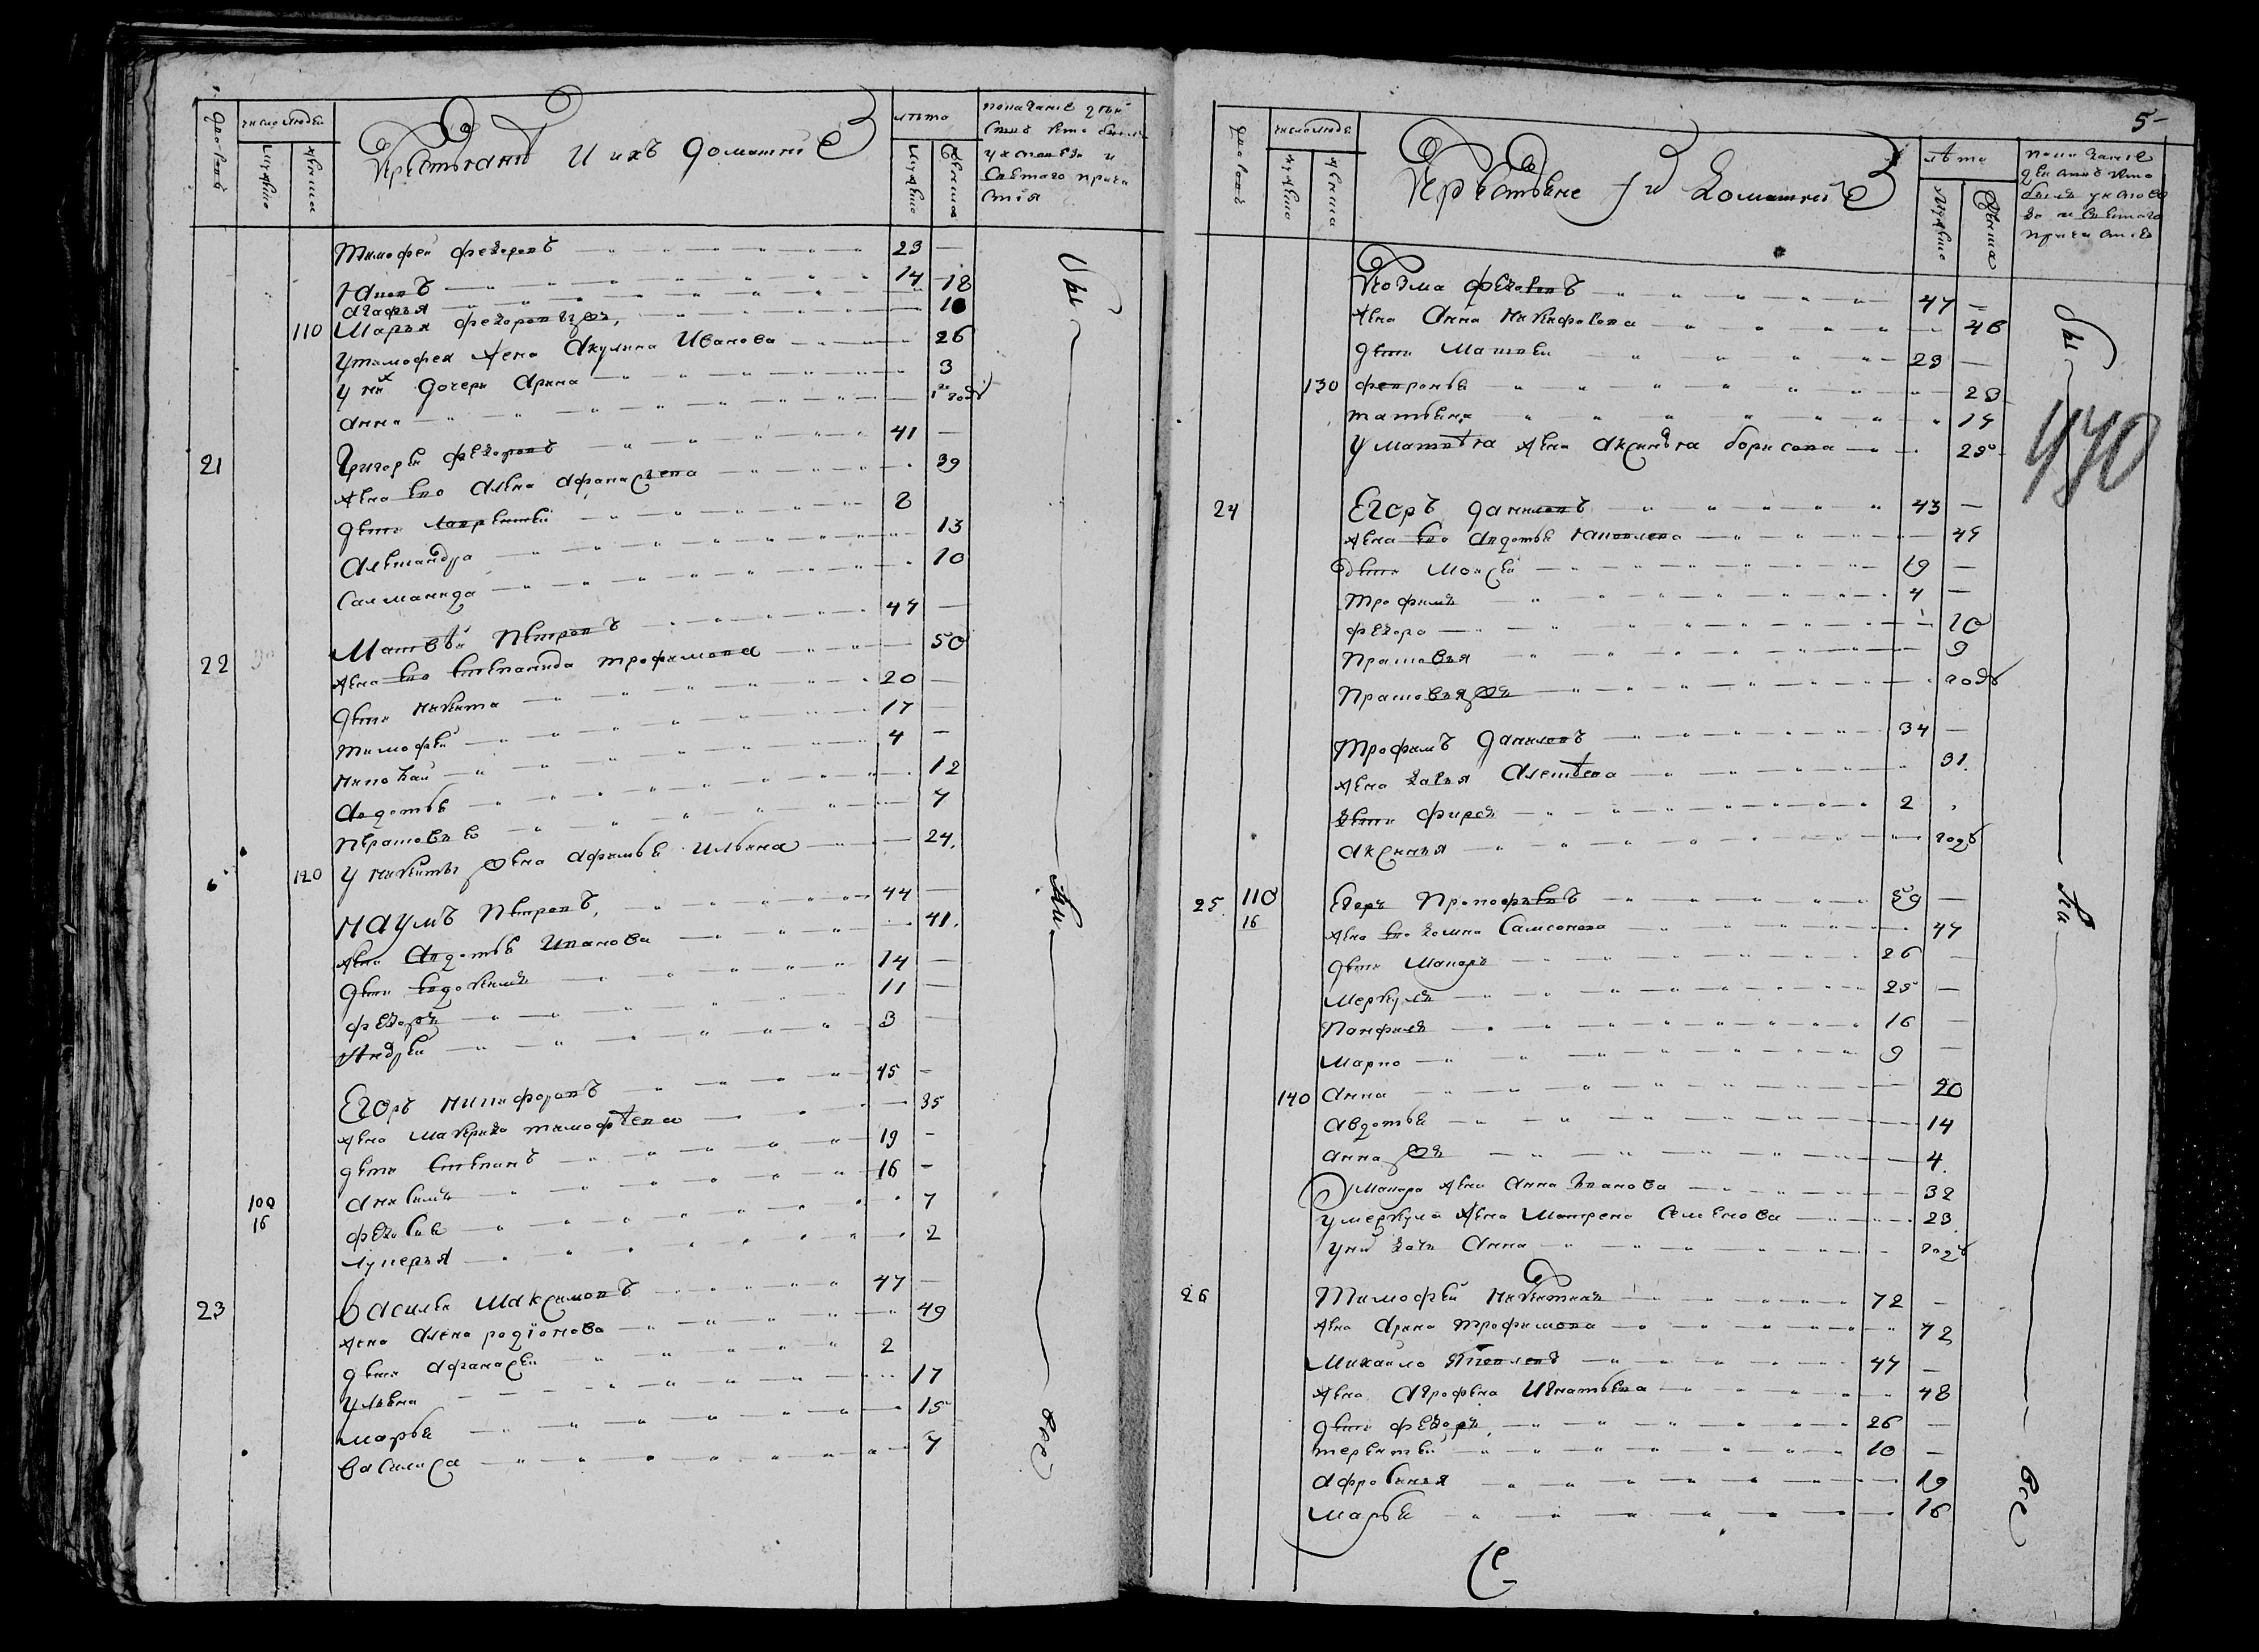 дворовъ
число людей
мужеска
женска
Крестьяне и ихъ домашние
лѣта
мужеска
женска
показание действ кто былъ у исповеди и святаго причастия
Тимофей Федоровъ 23
Яковъ 14
Агафья 18
110 Марья Федоровы 10
У Тимофея жена Акулина Иванова 26
у них дочери Арина 3
Анна 1 годъ
21 Григорей Федоровъ 41
жена ево Алена Афанасьева 39
дети Лаврентей 8
Александра 13
Саломанида 10
22 Матвѣй Петровъ 47
жена ево Степанида Трофимова 50
дети Никита 20
Тимофей 17
Николай 4
Авдотья 12
Прасковья 7
120 У Никиты жена Афимья Ильина 24
Наумъ Петровъ 44
жена Авдотья Иванова 41
дети Евдокимъ 14
Федоръ 11
Андрей 3
Егоръ Никифоровъ 45
жена Макрида Тимофѣева 35
дети Степанъ 19
100
16
Анисимъ 16
Федосия 7
Лукерья 2
23 Василей Максимовъ 47
жена Алена Родїонова 49
дети Афанасей 2
Ульяна 17
Марья 15
Василиса 7
Бы
ли
все
5
дворовъ
число людей
мужеска
женска
Крестьяне и домашние
лѣта
мужеска
женска
показание действ кто былъ у исповеди и святаго причастия
Козма Федоровъ 47
жена Анна Никифорова 46
дети Матвей 23
130 Феврония 23
Татьяна 14
У Матвѣя жена Аксинья Борисова 25
470
24 Егоръ Даниловъ 43
жена ево Авдотья Яковлева 45
дети Моисей 19
Трофимъ 4
Федора 20
Прасковья 9
Прасковья же годъ
Трофимъ Даниловъ 34
жена Дарья Алексѣева 31
дети Фирсъ 2
Аксинья годъ
25 110
16
Егоръ Прокофьевъ 59
жена ево Домна Самсонова 47
дети Макаръ 26
Меркулъ 25
Панфилъ 16
Марко 9
140 Анна 20
Авдотья 14
Анна же 4
У Макара жена Анна Иванова 32
у Меркула жена Матрена Семенова 23
у них дочь Анна годъ
26 Тимофей Никитинъ 72
жена Арина Трофимова 72
Михайло 47
жена Агрофена Игнатьева 48
дети Федоръ 26
Терентей 10
Афросинья 19
Марья 16
Бы
ли
все